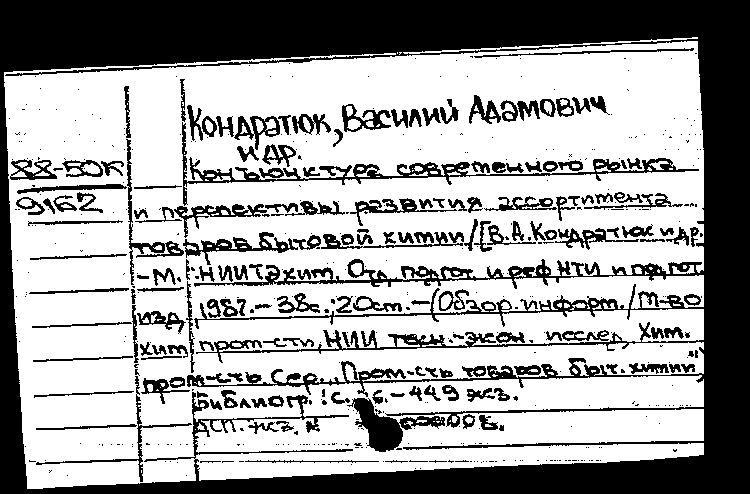 Кондратюк, Василий Адамович
и др.
88-50к
9162
Конъюнктура современного рынка
и перспективы развития ассортимента
товаров бытовой химии/[В.А.Кондратюк и др.
-М.: НИИТЭхим. Отд. подгот. и реф. НТИ и подгот.
изд, 1987.-38с.; 20см.-(Обзор. информ./М-во
хим пром-сти, НИИ техн.-экон. исслед. Хим.
пром-сть. Сер., Пром-сть товаров быт. химии",
Библиогр.: с. .-449 экз.
ДСП. экз. №